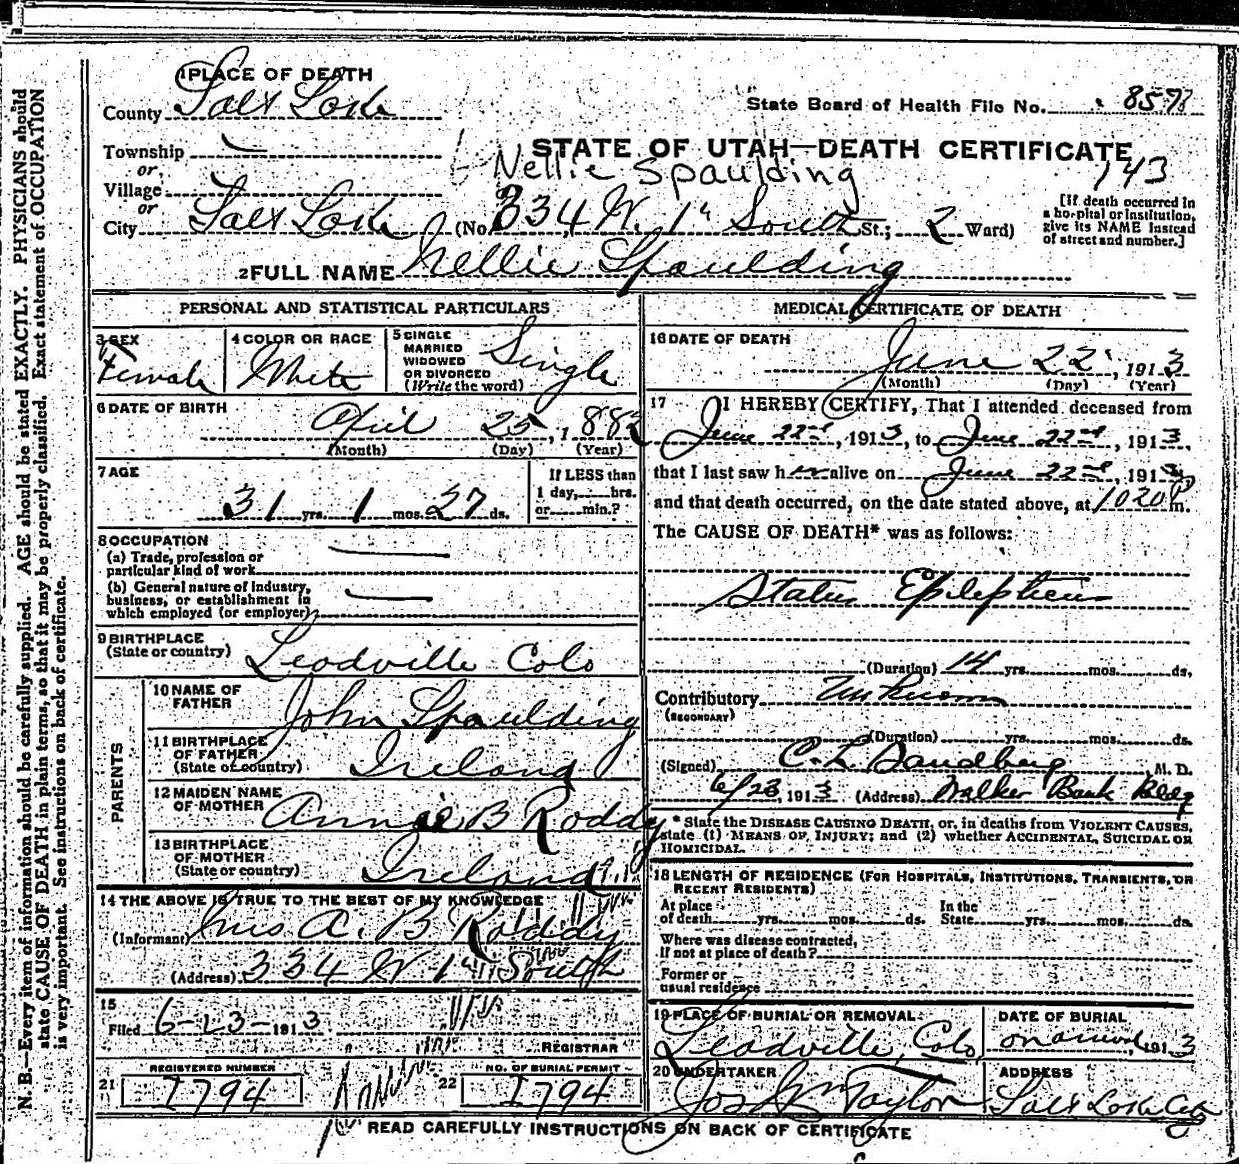 1 PLACE OF DEATH
County Salt Lake
State Board of Health File No.
Township
or
Village
or
STATE OF UTAH—DEATH CERTIFICATE
Nellie Spaulding
143
City Salt Lake (No. 334 W. 1st South St.; 2 Ward)
[If death occurred in a hospital or institution, give its NAME instead of street and number.]
2 FULL NAME Nellie Spaulding
PERSONAL AND STATISTICAL PARTICULARS
3 SEX Female
4 COLOR OR RACE White
5 SINGLE MARRIED WIDOWED OR DIVORCED (Write the word) Single
6 DATE OF BIRTH April 25, 1882
(Month) (Day) (Year)
7 AGE 31 yrs. 1 mos. 27 ds.
If LESS than 1 day, hrs. or min.?
8 OCCUPATION
(a) Trade, profession or particular kind of work
(b) General nature of industry, business, or establishment in which employed (or employer)
9 BIRTHPLACE (State or country) Leadville Colo
PARENTS
10 NAME OF FATHER John Spaulding
11 BIRTHPLACE OF FATHER (State or country) Ireland
12 MAIDEN NAME OF MOTHER Annie B Roddy
13 BIRTHPLACE OF MOTHER (State or country) Ireland
14 THE ABOVE IS TRUE TO THE BEST OF MY KNOWLEDGE
(Informant) Mrs A. B Roddy
(Address) 334 W 1st South
15
Filed 6-23-1913
REGISTRAR
21 REGISTERED NUMBER 1794
22 NO. OF BURIAL PERMIT 1794
MEDICAL CERTIFICATE OF DEATH
16 DATE OF DEATH June 22, 1913
(Month) (Day) (Year)
17 I HEREBY CERTIFY, That I attended deceased from
June 22nd, 1913, to June 22nd, 1913,
that I last saw her alive on June 22nd, 1913
and that death occurred, on the date stated above, at 1020 P m.
The CAUSE OF DEATH* was as follows:
Status Epilepticus
(Duration) 14 yrs. mos. ds.
Contributory Unknown
(SECONDARY)
(Duration) yrs. mos. ds.
(Signed) C. L. Sandberg, M. D.
6/23, 1913 (Address) Walker Bank Bldg
* State the DISEASE CAUSING DEATH, or, in deaths from VIOLENT CAUSES,
state (1) MEANS OF INJURY; and (2) whether ACCIDENTAL, SUICIDAL OR
HOMICIDAL.
18 LENGTH OF RESIDENCE (FOR HOSPITALS, INSTITUTIONS, TRANSIENTS, OR
RECENT RESIDENTS)
At place of death yrs. mos. ds. In the State yrs. mos. ds.
Where was disease contracted,
If not at place of death?
Former or
usual residence
19 PLACE OF BURIAL OR REMOVAL Leadville, Colo.
DATE OF BURIAL on arrival, 1913
20 UNDERTAKER Jos Wm Taylor
ADDRESS Salt Lake City
READ CAREFULLY INSTRUCTIONS ON BACK OF CERTIFICATE
N. B.—Every item of information should be carefully supplied. AGE should be stated EXACTLY. PHYSICIANS should
state CAUSE OF DEATH in plain terms, so that it may be properly classified. Exact statement of OCCUPATION
is very important. See instructions on back of certificate.